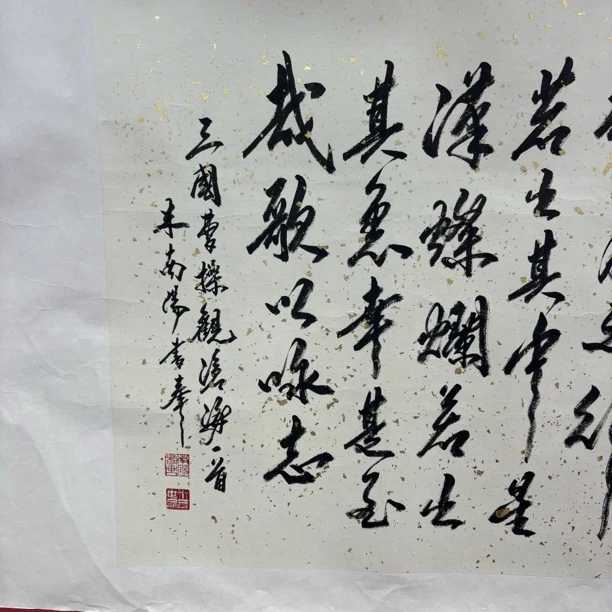 若出其中星
漢燦爛若出
其裏幸甚至
哉歌以咏志
三國曹操觀滄海一首
南陽書